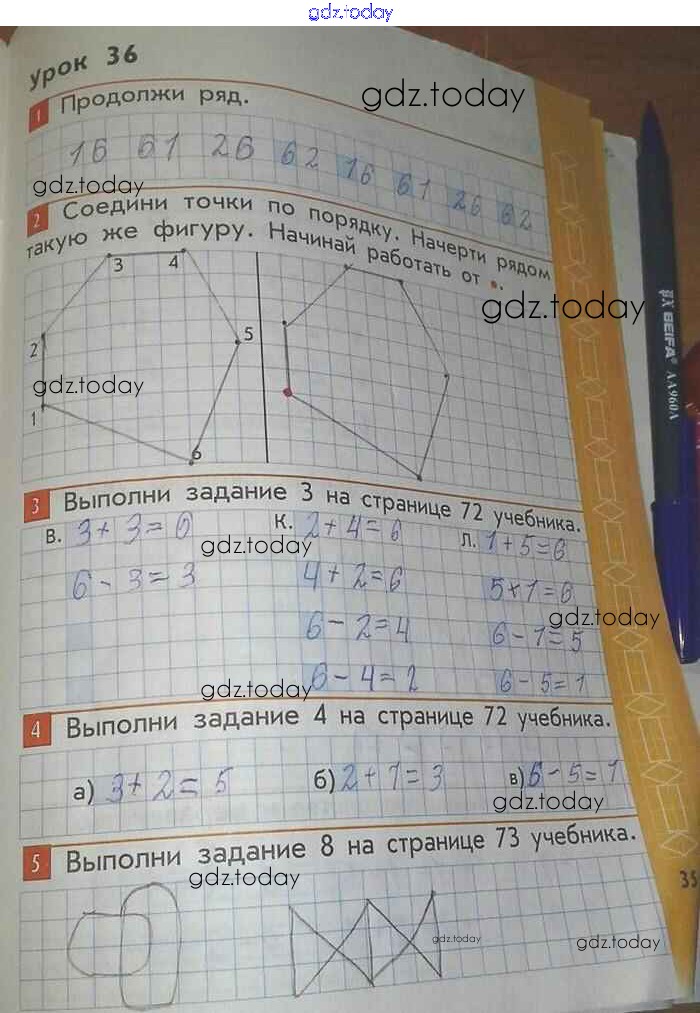 gdz.today
урок 36
1 Продолжи ряд.
gdz.today
16 61 26 62 16 61 26 62
gdz.today
2 Соедини точки по порядку. Начерти рядом
такую же фигуру. Начинай работать от .
3 4
gdz.today
5
2
gdz.today
1
6
3 Выполни задание 3 на странице 72 учебника.
В. 3+3=6 К. 2+4=6 Л. 1+5=6
gdz.today
6-3=3 4+2=6 5+1=6
gdz.today
6-2=4 6-1=5
6-4=2 6-5=1
gdz.today
4 Выполни задание 4 на странице 72 учебника.
а) 3+2=5 б) 2+1=3 в) 6-5=1
gdz.today
5 Выполни задание 8 на странице 73 учебника.
gdz.today
35
gdz.today
gdz.today
BEIFA AA960A